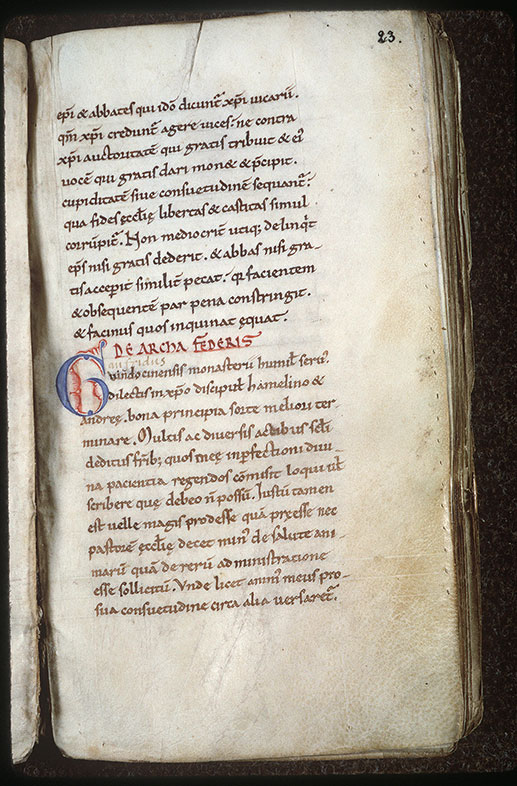 23.
ep̄i & abbates qui ideo dicunt᷑ xp̄i uicarii.
qm̄ xp̄i credunt᷑ agere uices: ne contra
xp̄i auctoritatē qui gratis tribuit & ei᷒
uocē qui gratis dari monet & p̄cipit.
cupiditatē siue consuetudinē sequant᷑:
qua fides ęccłię libertas & castitas simul
corrūpit᷑. Non mediocrit̄ utiq; delinq̇t
ep̄s nisi gratis dederit. & abbas nisi gra-
tis acceꝑit similit̄ peccat. qͥ facientem
& obsequentē par pena constringit.
& facinus quos inquinat ęquat.
DE ARCHA FEDERIS
Goffridus
uindocinensis monasterii humił seruꝰ.
dilectis in xp̄o discipuł hamelino &
andreę. bona principia sorte meliori ter-
minare. Multis ac diuersis actibus scłi
deditus frīb; quos meę inperfectioni diui-
na pacientia regendos cōmisit loqui uł
scribere quę debeo n̄ possū. Iustū tamen
est uelle magis prodesse quā pręesse nec
pastorē ęccłię decet min᷒ de salute ani-
marū quā de rerū administratione
esse sollicitū. Vnde licet anim᷒ meus pro-
sua consuetudine circa alia uersaret᷑.